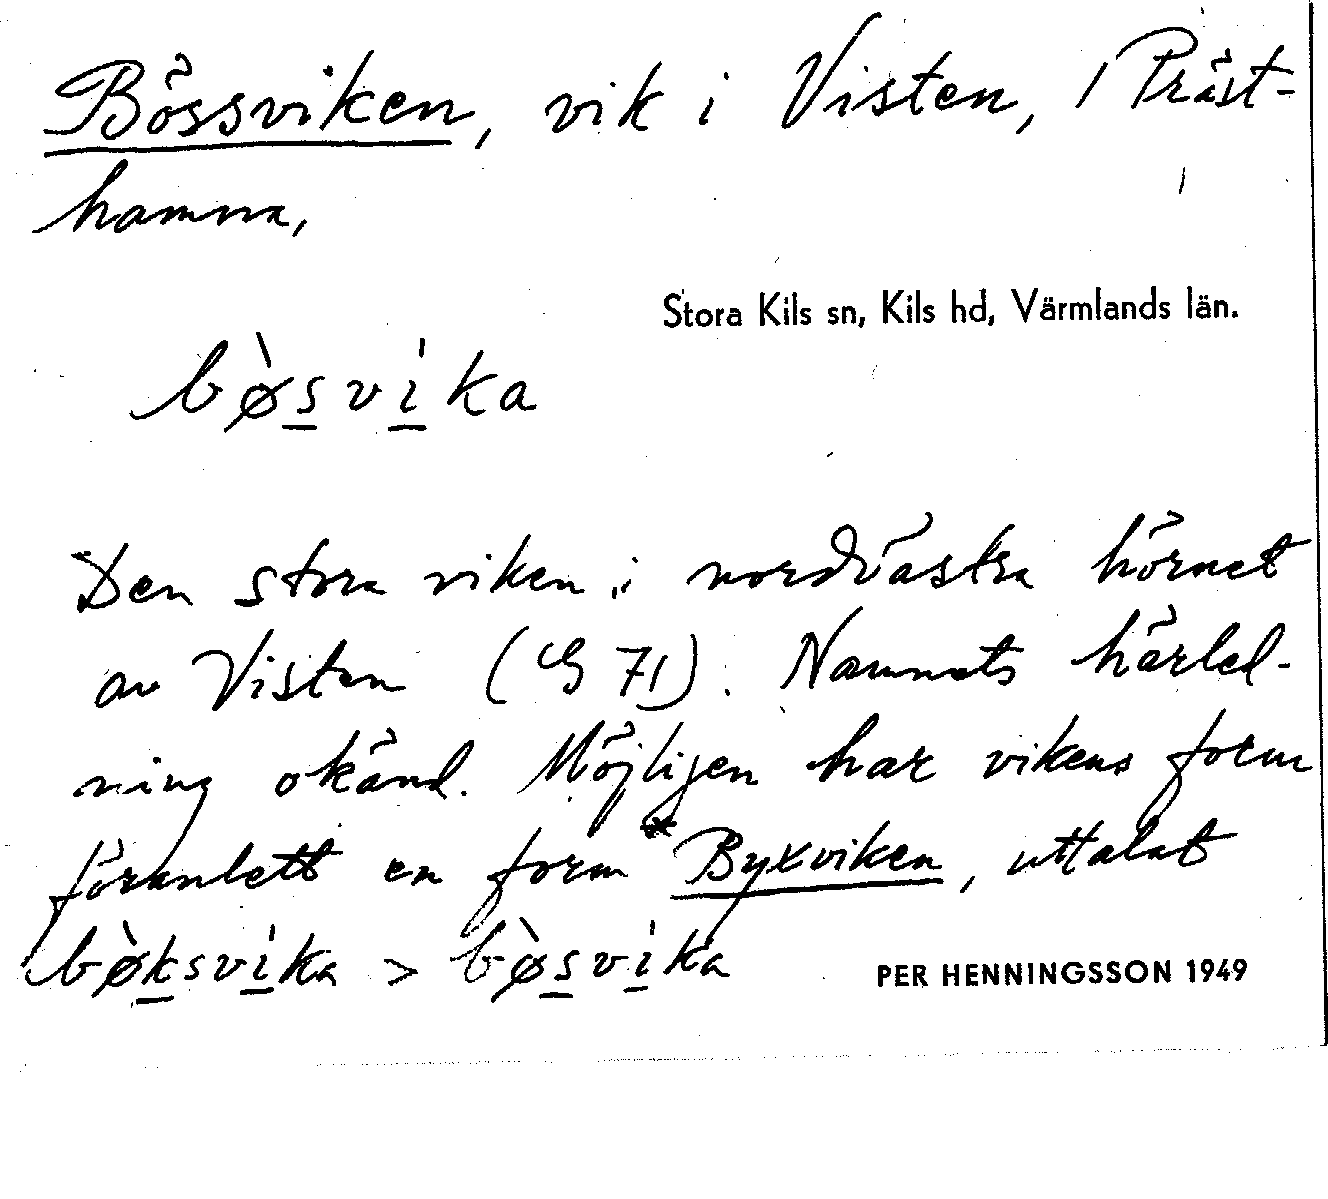 Bössviken, vik i Visten, 1 Präst-
hamna,
Stora Kils sn, Kils hd, Värmlands län.
bø̀svi̍ka
Den stora viken i nordvästra hörnet
av Visten (G 71). Namnets härled-
ning okänd. Möjligen har vikens form
föranlett en form *Byxviken, uttalat
bø̀ksvi̍ka > bø̀svi̍ka
PER HENNINGSSON 1949